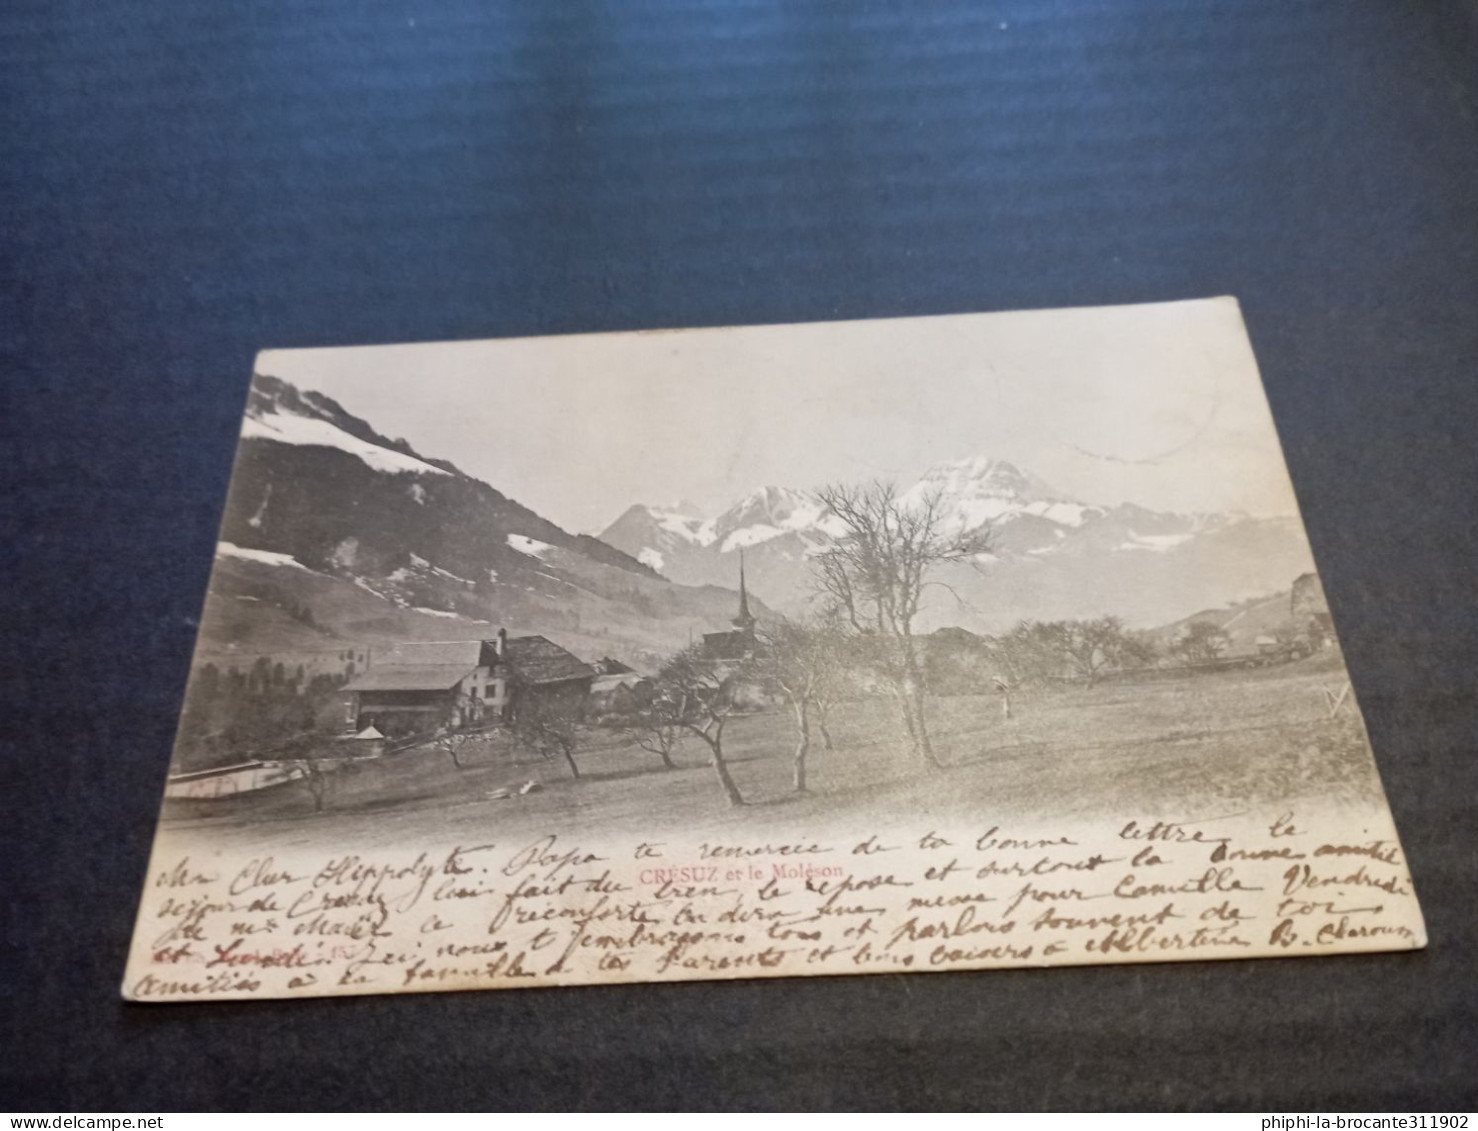 Hippolyte. Papa te remercie de ta bonne lettre le
séjour de lui fait du bien le repose et surtout la bonne amitié
de Mr réconforte dira une messe pour Camille Vendredi
et Lundi. Ici nous t'embrassons tous et parlons souvent de toi
amitiés à la famille à tes Parents et bons baisers à Albertine B.
CRÉSUZ et le Moléson
phiphi-la-brocante311902